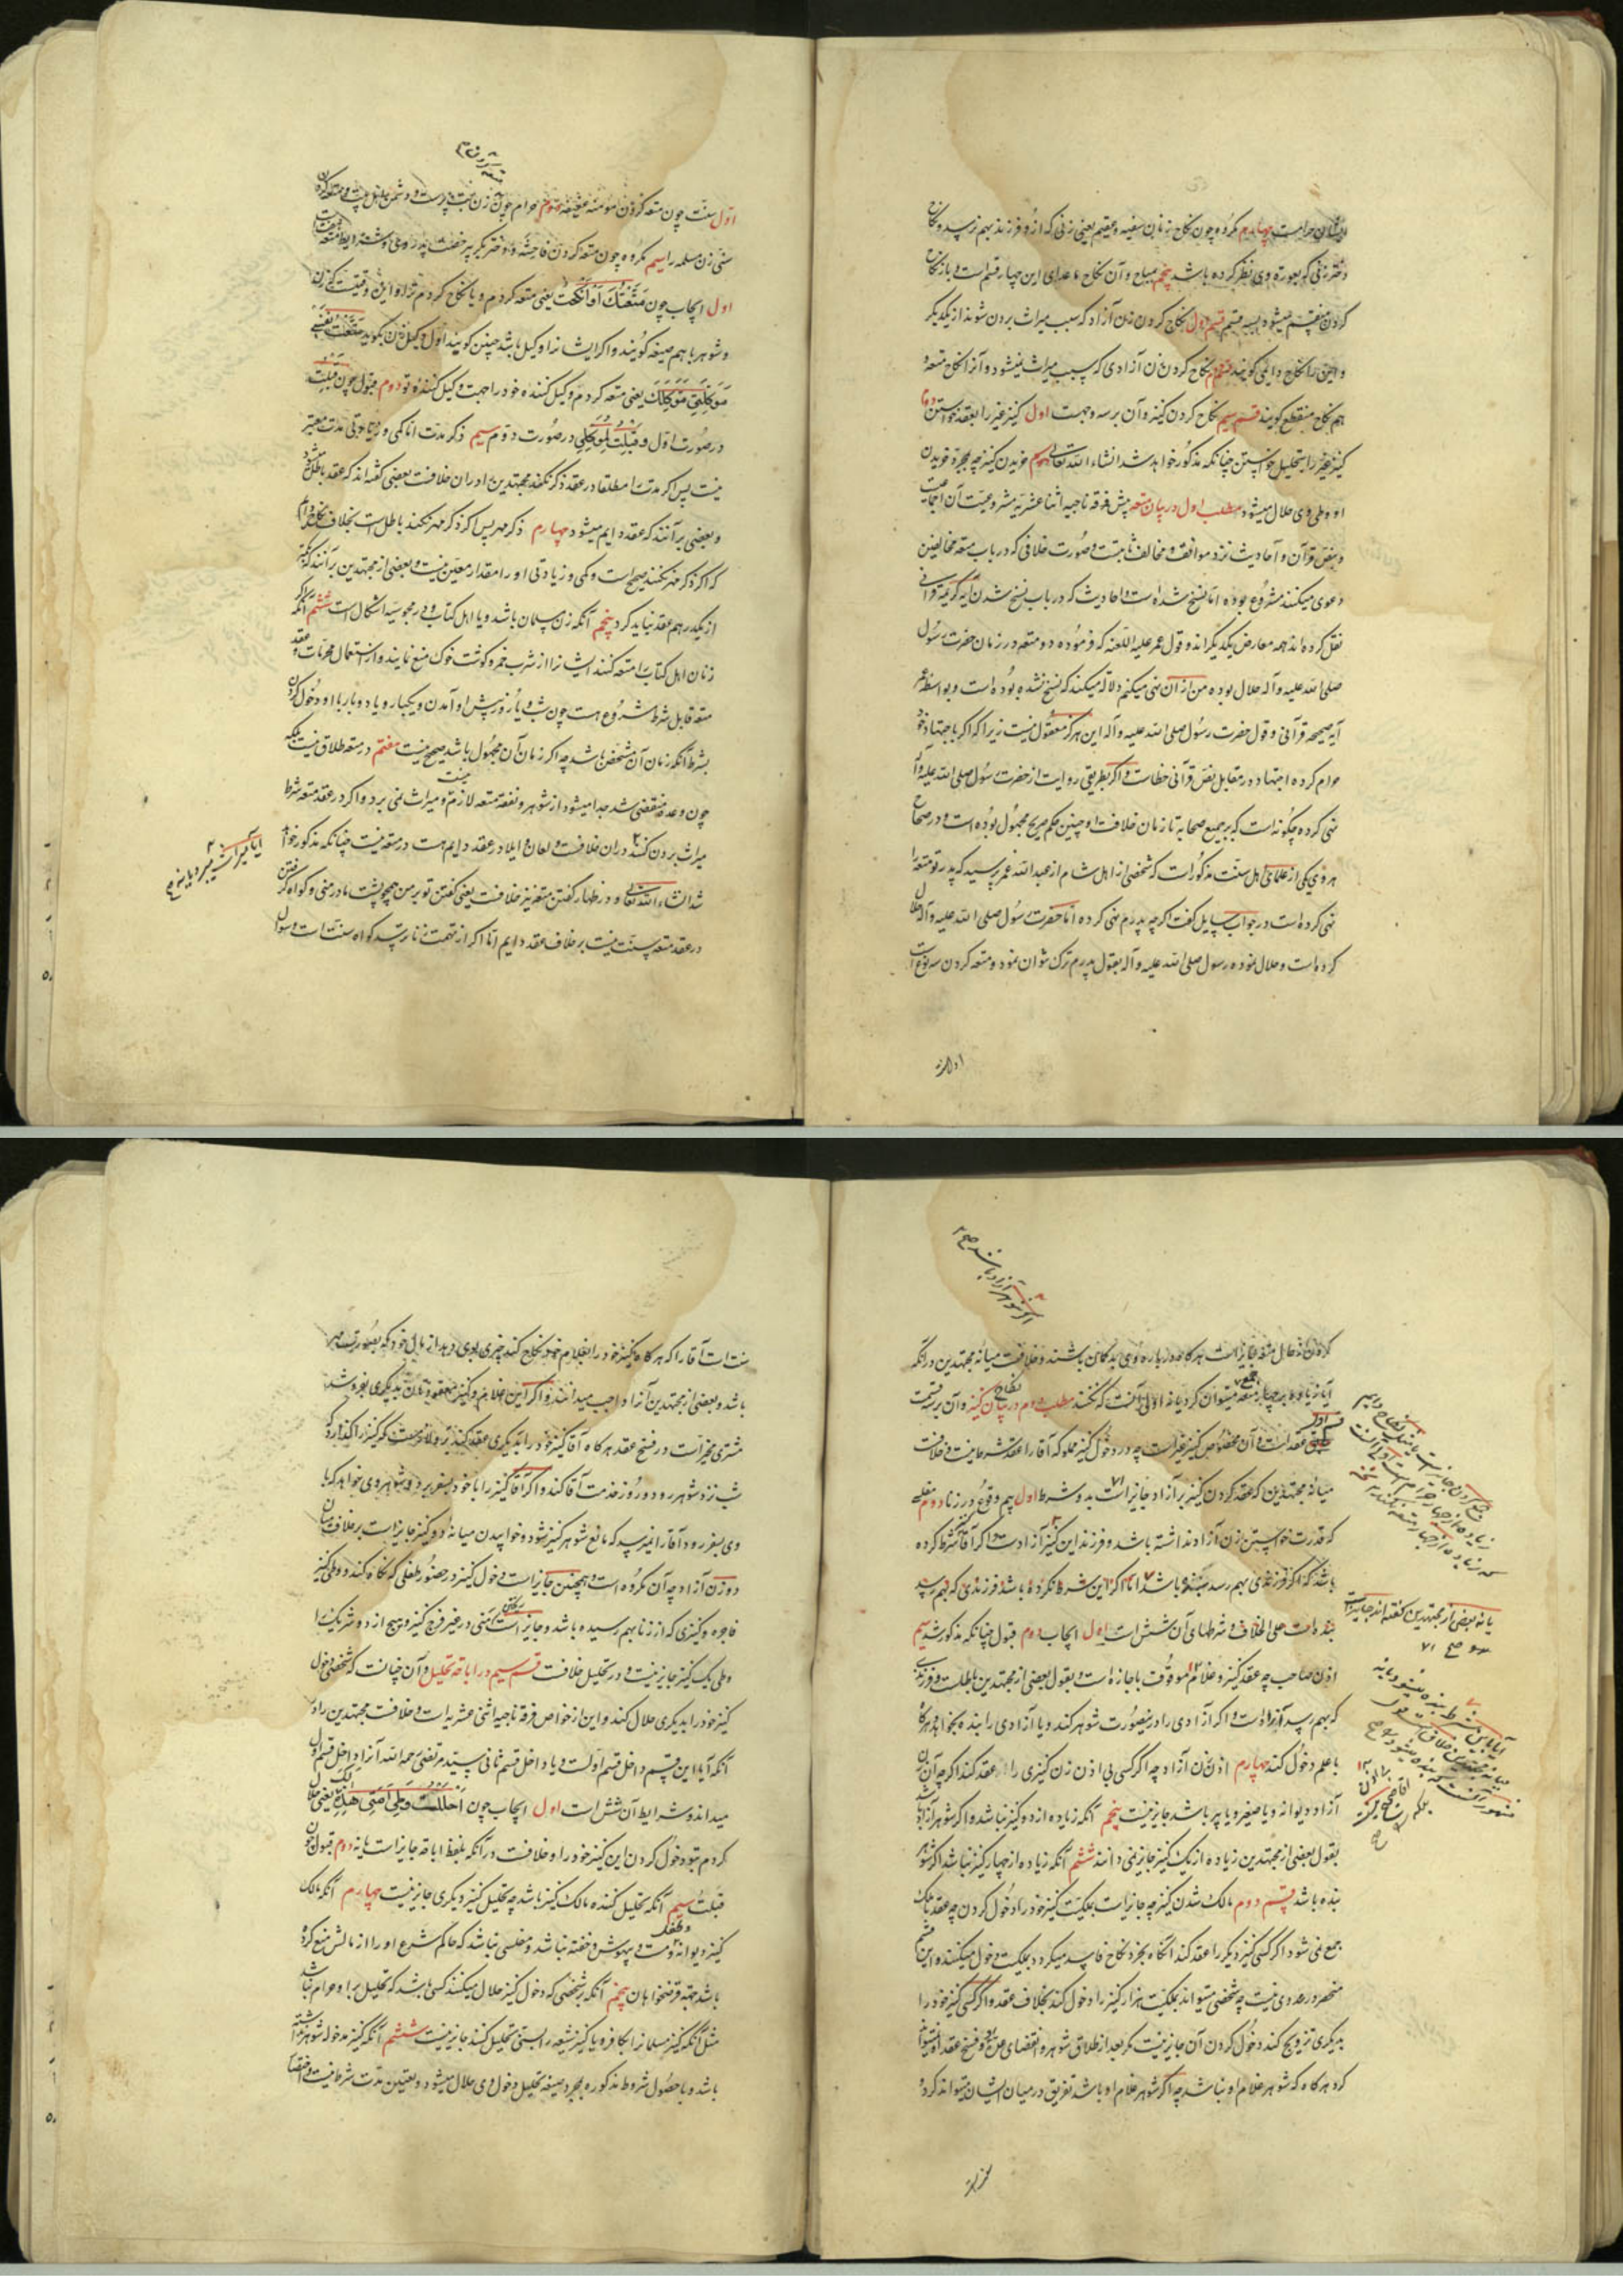 ایشان حرامست چهارم مکروه چون نکاح زنان سفیه و عقیم یعنی زنی که از و فرزند بهم نرسد و نکاح
دختر زنی که بعورة وی نظر کرده باشد پنجم مباح و آن نکاح ماعدای این چهار قسم است و باز نکاح
کردن منقسم میشود بسه قسم قسم اول نکاح کردن زن آزاد که سبب میراث بردن شوند از یکدیگر
و این را نکاح دایمی گویند قسم دوم نکاح کردن زن آزادی که سبب میراث نمیشود و آنرا نکاح متعه و
هم نکاح منقطع گویند قسم سیم نکاح کردن کنیز و آن برسه وجهست اول کنیز غیر را بعقد خواستن دوم
کنیز غیر را بتحلیل خواستن چنانکه مذکور خواهد شد انشاء الله تعالی سیم خریدن کنیز چه بمجرد خریدن
او وطی وی حلال میشود مطلب اول در بیان متعه پیش فرقه ناجیه اثنا عشریه مشروعیت آن اجماعیست
و بنص قرآن و احادیث نزد موافق و مخالف ثابتست و صورت خلافی که در باب متعه مخالفین
دعوی میکنند مشروع بوده اما نسخ شده است و احادیث که در باب نسخ شدن آیه کریمه قرآنی
نقل کرده اند همه معارض یکدیگراند و قول عمر علیه اللعنه که فرموده دو متعه در زمان حضرت رسول
صلی الله علیه و آله حلال بوده من از آن نهی میکنم دلالة میکند که نسخ نشده بوده است و بواسطه
آیه صحیحه قرآنی و قول حضرت رسول صلی الله علیه و آله این هرگز معقول نیست زیرا که اگر باجتهاد خود
حرام کرده اجتهاد در مقابل نص قرآنی خطاست و اگر بطریق روایت از حضرت رسول صلی الله علیه و آله
نهی کرده چگونه است که بر جمیع صحابه تا زمان خلافت او چنین حکم صریح مجهول بوده است و در صحاح
هروی یکی از علمای اهل سنت مذکور است که شخصی از اهل شام از عبد الله عمر پرسید که پدر تو متعه را
نهی کرده است در جواب سایل گفت اگرچه پدرم نهی کرده اما حضرت رسول صلی الله علیه و آله حلال
کرده است و حلال نموده رسول صلی الله علیه و آله بقول پدرم ترک نتوان نمود و متعه کردن سه نوع است
اول سنت چون متعه کردن مؤمنه عفیفه دوم حرام چون زن بت پرست و دشمن اهل بیت و متعه کردن
سنی زن مسلمه را سیم مکروه چون متعه کردن فاحشه و دختر بکر بی رخصت پدر وی و شرایط متعه
اول ایجاب چون مَتَّعْتُکَ اَوْ اَنْکَحْتُ یعنی متعه کردم و یا نکاح کردم ترا و این وقتیست که زن
و شوهر باهم صیغه گویند و اگر ایشان را وکیل باشد چنین گویند اول وکیل زن بگوید
مُوَکِّلَتِی مُوَکِّلَکَ یعنی متعه کردم وکیل کننده خود را جهت وکیل کننده تو دوم قبول چون قبلت
در صورت اول و قَبِلْتُ لِمُوَکِّلِی در صورت دوم سیم ذکر مدت اما کمی و زیادتی مدت معتبر
نیست پس اگر مدت را مطلقا در عقد ذکر نکنند مجتهدین را در ان خلافست بعضی گفته اند که عقد باطل میشود
و بعضی بر آنند که عقد دایم میشود چهارم ذکر مهر پس اگر ذکر مهر نکنند باطل است بخلاف نکاح دایم
که اگر ذکر مهر نکنند صحیح است و کمی و زیادتی او را مقدار معین نیست و بعضی از مجتهدین بر آنند که
از یک درهم عقد نباید کرد پنجم آنکه زن مسلمان باشد و یا اهل کتاب و در مجوسیه اشکال است ششم آنکه
زنان اهل کتاب را متعه کنند ایشان را از شرب خمر و گوشت خوک منع نمایند و از استعمال محرمات و عقد
متعه قابل شرط مشروع هست چون شب و یا روز پیش او آمدن و یکبار و یا دو بار با او دخول کردن
بشرط آنکه زمان آن مشخص باشد چه اگر زمان آن مجهول باشد صحیح نیست هفتم در متعه طلاق نیست بلکه
چون وعده منقضی شد جدا میشود از شوهر و نفقه متعه لازم نیست و میراث نمی برد و اگر در عقد متعه شرط
میراث بردن کنند در ان خلافست و لعان و ایلا در عقد دایم هست در متعه نیست چنانکه مذکور خواهد
شد انشاء الله تعالی و در ظهار گفتن متعه نیز خلافست یعنی گفتن تو بر من همچو پشت مادر منی و گواه گرفتن
در عقد متعه سنت نیست بر خلاف عقد دایم اما اگر از تهمت زنا ترسد گواه سنت است و سؤال
آیا میراث میبرد یا نه
کردن از حال متعه جایز است هرگاه درباره وی بدگمان باشند و خلافست میانه مجتهدین در آنکه
آیا زیاده بر چهار متعه جمع میتوان کرد یا نه اولی آنست که نکنند مطلب دوم در بیان نکاح کنیز و آن برسه قسمست
عقد است و آن مخصوص کنیز غیر است چه در دخول کنیز مملوکه آقا را عقد شرعا نیست و خلافست
میانه مجتهدین که عقد کردن کنیز بر آزاد جایز است بدو شرط اول بیم وقوع در زنا دوم مفلسی
که قدرت خواستن زن آزاد نداشته باشد و فرزند این کنیز آزادست و اگر آقا شرط کرده
باشد که اگر فرزندی بهم رسد بنده باشد اما اگر این شرط نکرده باشد فرزندی که بهم رسد
بنده است علی الخلاف و شرطهای آن شش است اول ایجاب دوم قبول چنانکه مذکور شد سیم
اذن صاحب چه عقد کنیز و غلام موقوف باجازه است و بقول بعضی از مجتهدین باطلست و فرزندی
که بهم رسد آزاد است و اگر آزادی را در ینصورت شوهر کند و یا آزادی را بنده بخواهد هرگاه
با علم دخول کند چهارم اذن زن آزاد چه اگر کسی بی اذن زن کنیزی را عقد کند اگرچه آن زن
آزاد دیوانه و یا صغیر و یا پیر باشد جایز نیست پنجم آنکه زیاده از دو کنیز نباشد و اگر شوهر آزاد باشد
بقول بعضی از مجتهدین زیاده از یک کنیز جایز نمی دانند ششم آنکه زیاده از چهار کنیز نباشد اگر شوهر
بنده باشد قسم دوم مالک شدن کنیز چه جایز است بملکیت کنیز خود را دخول کردن چه عقد با ملک
جمع نمی شود اگر کسی کنیز دیگر را عقد کند آنگاه بخرد نکاح فاسد میگردد و بملکیت دخول میکند و این قسم
منحصر در عددی نیست چه شخصی میتواند بملکیت هزار کنیز را دخول کند بخلاف عقد و اگر کسی کنیز خود را
بدیگری تزویج کند دخول کردن آن جایز نیست مگر بعد از طلاق شوهر و انقضای عده و فسخ عقد او میتواند
کرد هرگاه که شوهر غلام او نباشد چه اگر شوهر غلام او باشد تفریق در میان ایشان میتواند کرد و
یا نه بعضی از مجتهدین گفته اند جایز است
سنت است آقا را که هرگاه کنیز خود را بغلام خود نکاح کند چیزی بوی دهد از مال خود که بصورت مهر
باشد و بعضی از مجتهدین آنرا واجب میدانند و اگر این غلام و کنیز معقوده را بدیگری بفروشد
مشتری مخیر است در فسخ عقد هرگاه آقا کنیز خود را بدیگری عقد کند برو لازمست که کنیز را گذارد که
شب نزد شوهر رود و روز خدمت آقا کند و اگر آقا کنیز را با خود بسفر برد و شوهر وی خواهد که با
وی بسفر رود آقا را نمیرسد که مانع شوهر کنیز شود و خوابیدن میانه دو کنیز جایز است بر خلاف میان
دو زن آزاد چه آن مکروه است و همچنین جایز است دخول کنیز در حضور طفلی که نگاه کند و وطی کنیز
فاجره و کنیزی که از زنا بهم رسیده باشد و جایز است منی در غیر فرج کنیز و هیچ از دو شریک را
وطی یک کنیز جایز نیست و در تحلیل خلافست قسم سیم در اباحه تحلیل و آن چنانست که شخصی دخول
کنیز خود را بدیگری حلال کند و این از خواص فرقه ناجیه اثنی عشریه است و خلافست مجتهدین را در
آنکه آیا این قسم داخل قسم اولست و یا داخل قسم ثانی سید مرتضی رحمه الله آنرا داخل قسم اول
میداند و شرایط آن شش است اول ایجاب چون اَحْلَلْتُ لَکَ وَطْیَ اَمَتِی هٰذِهِ یعنی حلال
کردم بتو دخول کردن این کنیز خود را و خلافست در آنکه بلفظ اباحه جایز است یا نه دوم قبول چون
قبلت سیم آنکه تحلیل کننده مالک کنیز باشد چه تحلیل کنیز دیگری جایز نیست چهارم آنکه مالک
کنیز دیوانه و مست و بیهوش و خفته نباشد و مفلسی نباشد که حاکم شرع او را از مالش منع کرده
باشد جهة قرضخواهان پنجم آنکه شخصی که دخول کنیز حلال میکنند کسی باشد که تحلیل برا و حرام نباشد
مثل آنکه کنیز مسلمان را بکافر و یا کنیز شیعه را بسنی تحلیل کند جایز نیست ششم آنکه کنیز مدخوله شوهر نداشته
باشد و با حصول شروط مذکوره بمجرد صیغه تحلیل دخول وی حلال میشود و تعیین مدت شرط نیست